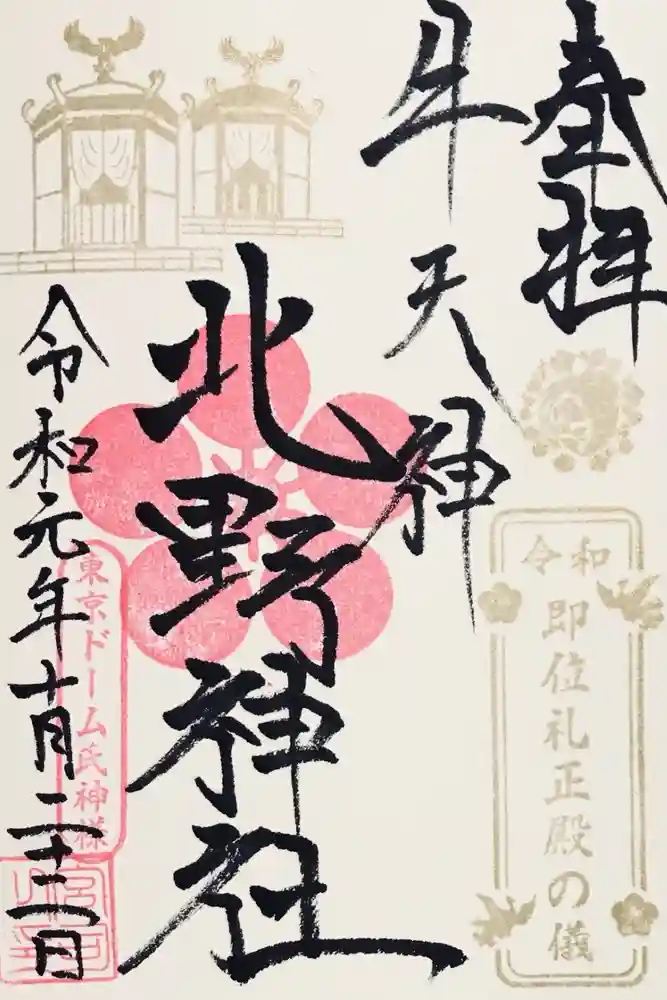 奉拝
令和
即位礼正殿の儀
牛天神
北野神社
東京ドーム氏神様
令和元年十月二十二日